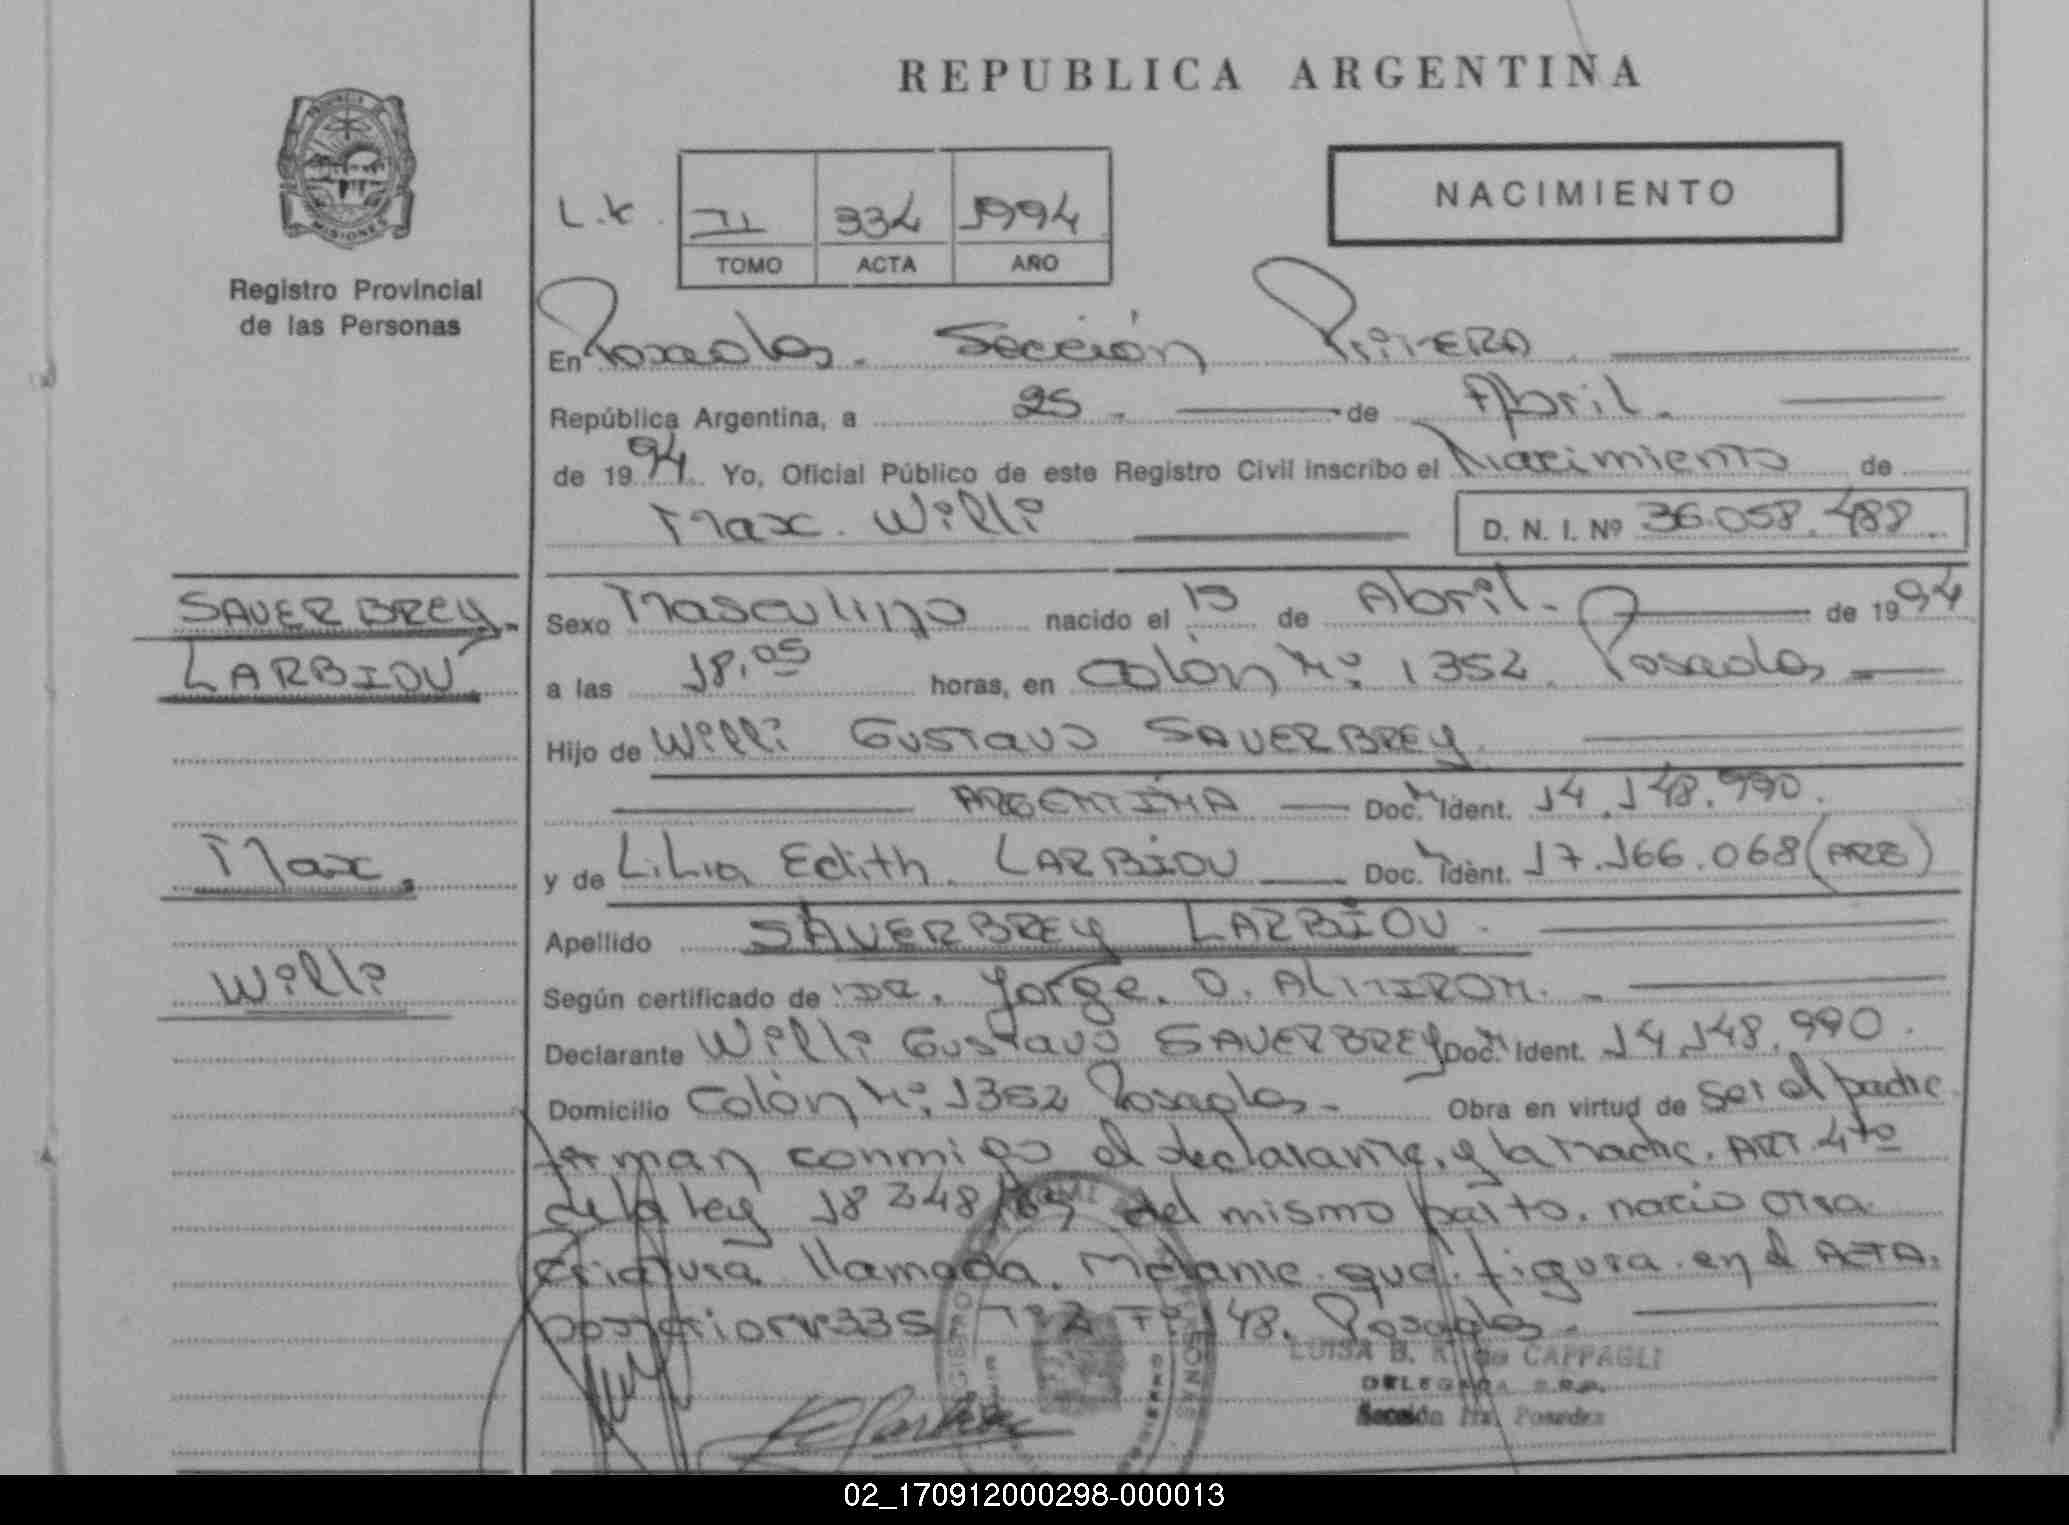 REPUBLICA ARGENTINA
NACIMIENTO
II 334 1994
TOMO ACTA AÑO
MISIONES
Registro Provincial
de las Personas
En Posadas. Sección Primera
República Argentina, a 25. de Abril.
de 1994. Yo, Oficial Público de este Registro Civil inscribo el Nacimiento de
Max. Willi
D. N. I. Nº 36.058.488.
SAUERBREY.
LARBIOU
Max.
Willi
Sexo Masculino nacido el 15 de Abril. de 1994
a las 18,05 horas, en Colón Nº. 1352. Posadas
Hijo de Willi Gustavo SAUERBREY.
ARGENTINA Doc. Ident. 14.148.990.
y de Lilia Edith. LARBIOU Doc. Ident. 17.166.068 (ARG)
Apellido SAUERBREY LARBIOU.
Según certificado de Dr. Jorge. O. ALMIRON.
Declarante Willi Gustavo SAUERBREY Doc. Ident. 14.148.990.
Domicilio Colón Nº. 1352 Posadas. Obra en virtud de ser el padre
firman conmigo el declarante, y la madre. ART. 4to
de la ley 18248/69 del mismo parto. nacio otra
criatura llamada. Melanie. que. figura. en el ACTA.
posterior Nº 335 Tº 2 Fº 148. Posadas.
LUISA B. K. de CAPPAGLI
DELEGADA R.P.P.
Sección 1ra. Posadas
02_170912000298-000013